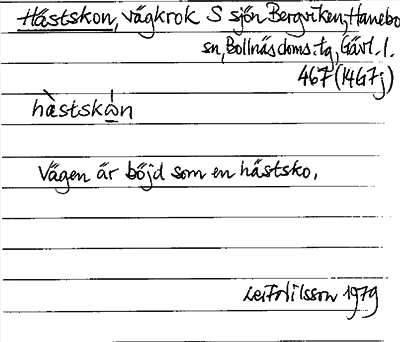 Hästskon, vägkrok S sjön Bergviken, Hanebo
sn, Bollnäs doms:tg, Gävl. l.
467 (14G7j)
hästskωn
Vägen är böjd som en hästsko.
Leif Nilsson 1979